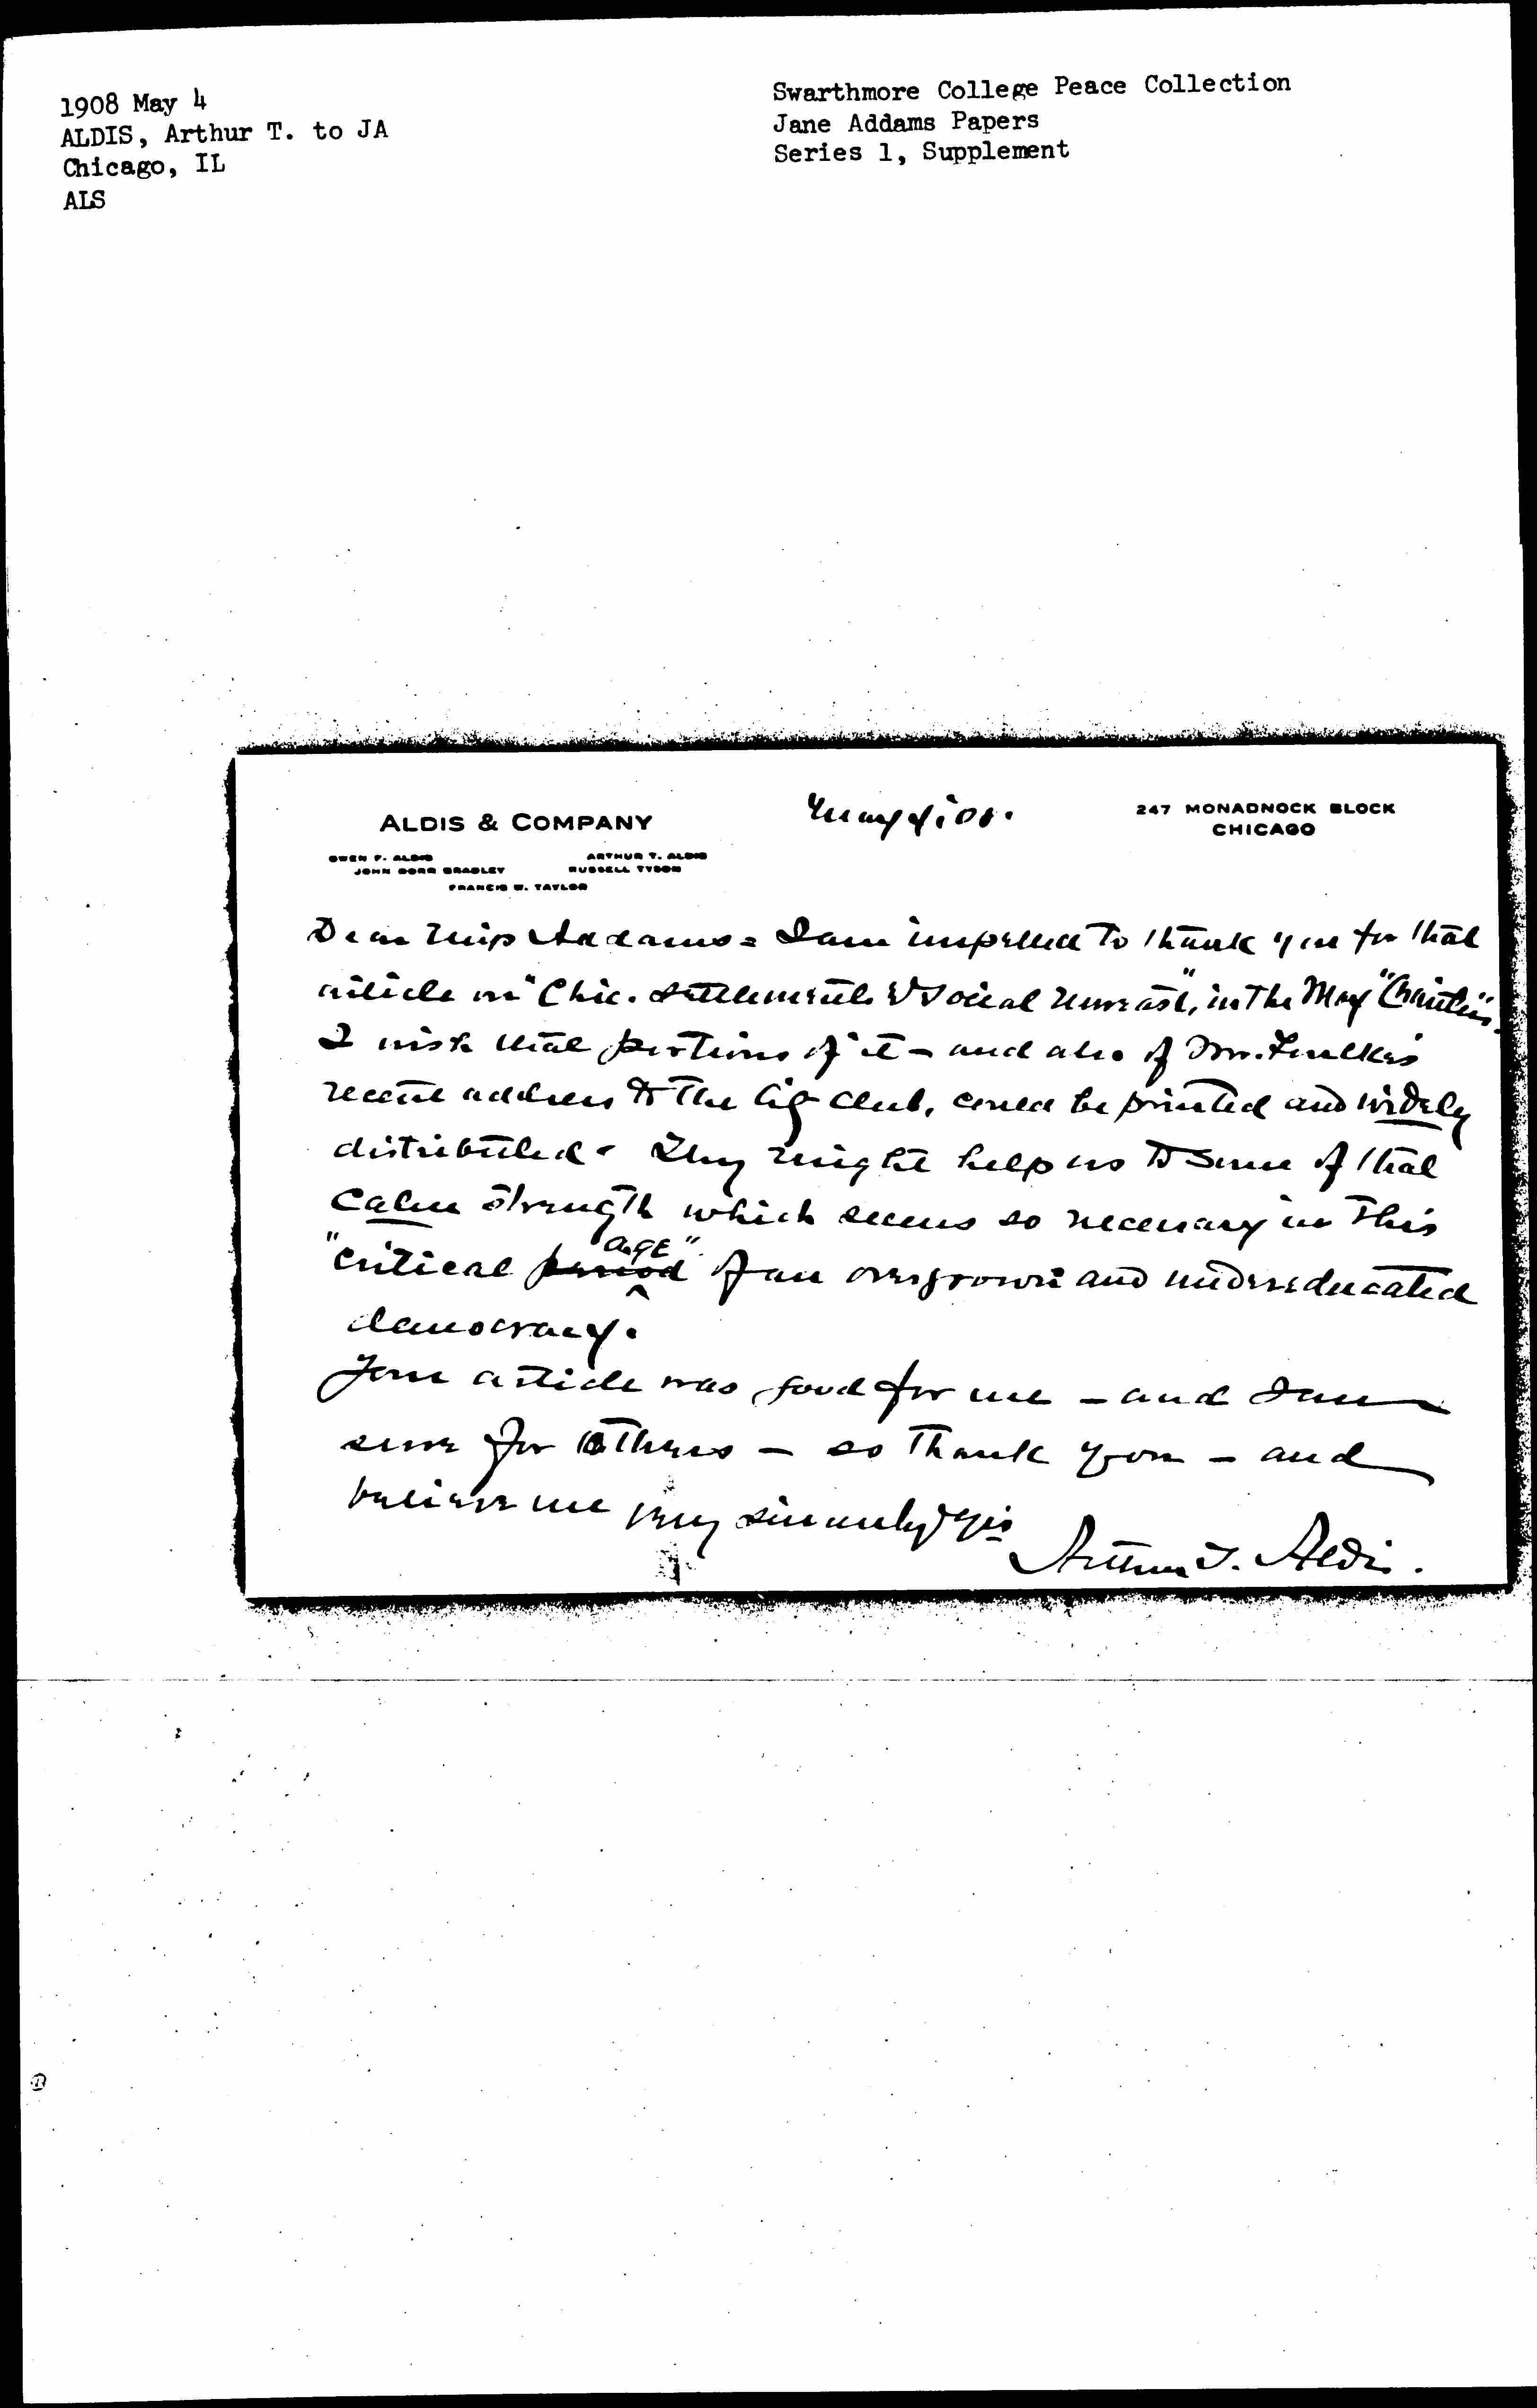 1908 May 4
ALDIS, Arthur T. to JA
Chicago, IL
ALS
Swarthmore College Peace Collection
Jane Addams Papers
Series 1, Supplement
ALDIS & COMPANY
OWEN F. ALDIS ARTHUR T. ALDIS
JOHN DORR BRADLEY RUSSELL TYSON
FRANCIS W. TAYLOR
May 4, 08.
247 MONADNOCK BLOCK
CHICAGO
Dear Miss Addams = I am impelled to thank you for that
article on "Chic. Settlements & Social Unrest", in the May "Charities".
I wish that portions of it - and also of Mr. Foulke's
recent address to the City Club, could be printed and widely
distributed. They might help us to some of that
calm strength which seems so necessary in this
"critical period age" of an overgrown and undereducated
democracy.
Your article was good for me - and I am
sure for others - so thank you - and
believe me very sincerely yrs
Arthur T. Aldis.